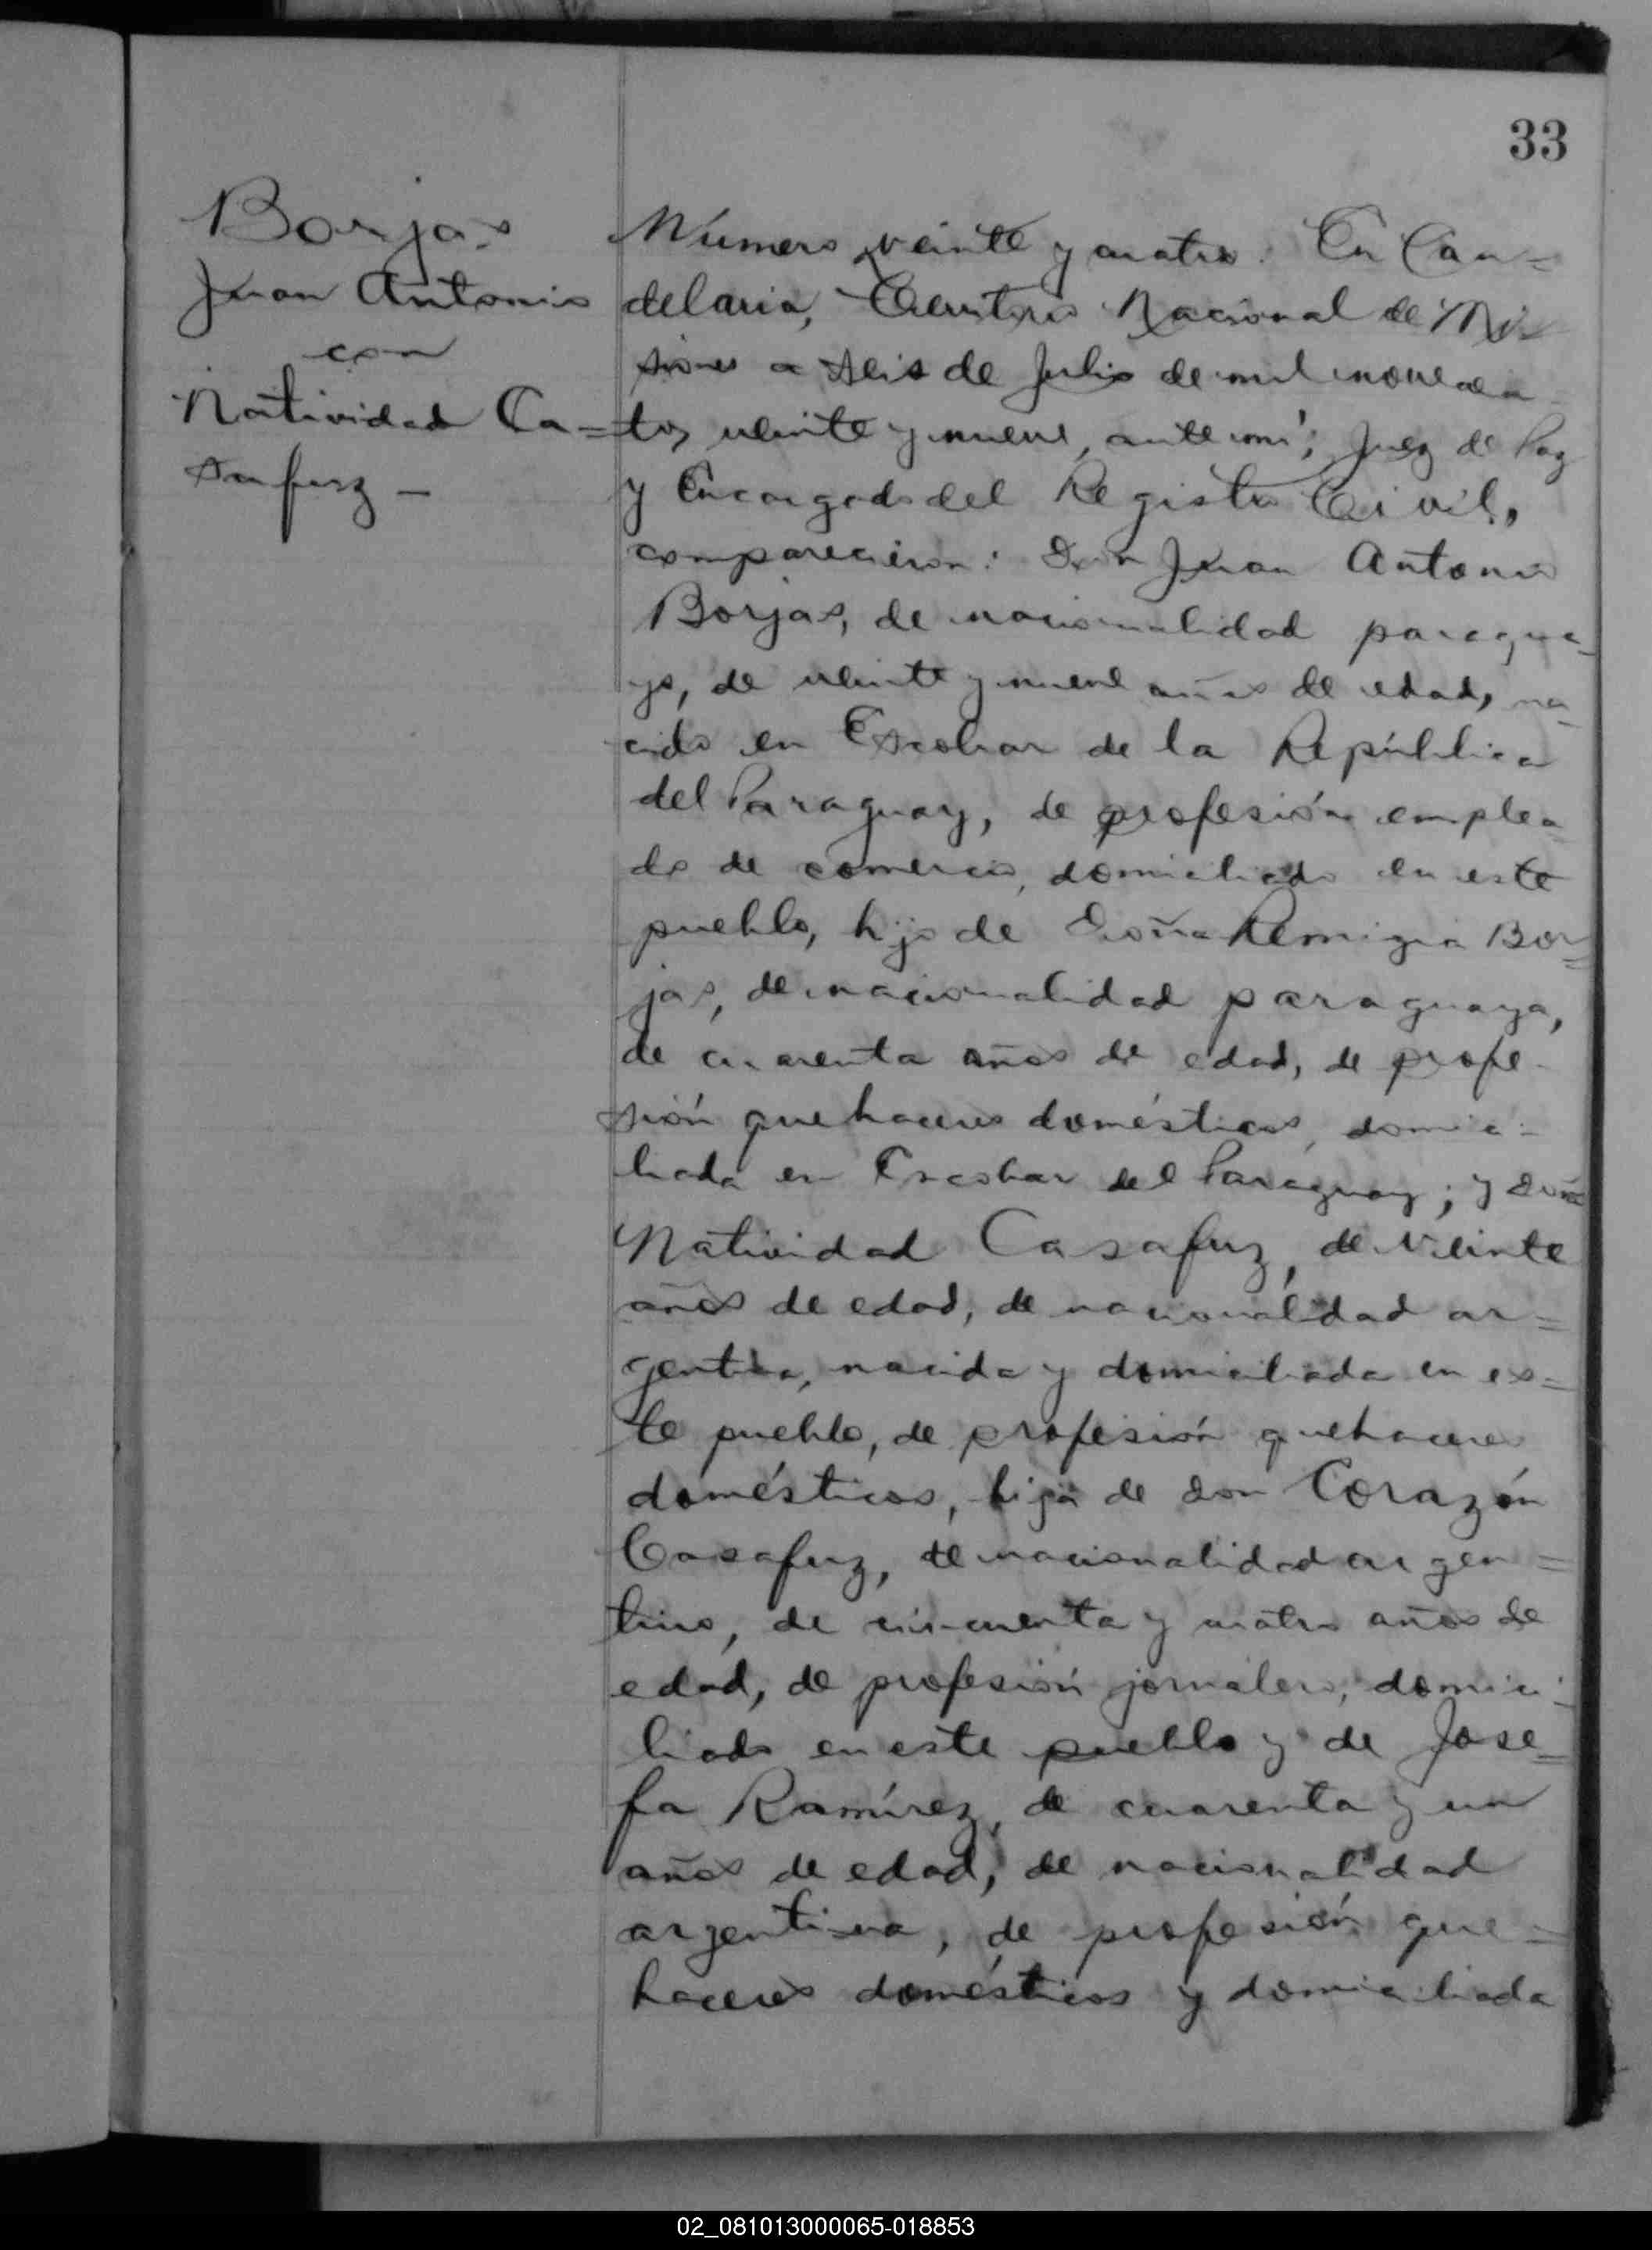 33
Borjas
Juan Antonio
con
Natividad Ca=
safuz –
Número veinte y cuatro: En Can=
delaria, Territorio Nacional de Mi=
siones a seis de Julio de mil novecien=
tos veinte y nueve, ante mí, Juez de Paz
y Encargado del Registro Civil,
comparecieron: Don Juan Antonio
Borjas, de nacionalidad paragua=
yo, de veinte y nueve años de edad, na=
cido en Escobar de la República
del Paraguay, de profesión emplea=
do de comercio, domiciliado en este
pueblo, hijo de Doña Remigia Bor=
jas, de nacionalidad paraguaya,
de cuarenta años de edad, de profe-
sión quehaceres domésticos, domici-
liada en Escobar del Paraguay; y doña
Natividad Casafuz, de veinte
años de edad, de nacionalidad ar=
gentina, nacida y domiciliada en es=
te pueblo, de profesión quehaceres
domésticos, hija de don Corazón
Casafuz, de nacionalidad argen=
tino, de cincuenta y cuatro años de
edad, de profesión jornalero, domici=
liado en este pueblo y de Jose=
fa Ramírez, de cuarenta y un
años de edad, de nacionalidad
argentina, de profesión que=
haceres domésticos y domiciliada
02_081013000065-018853